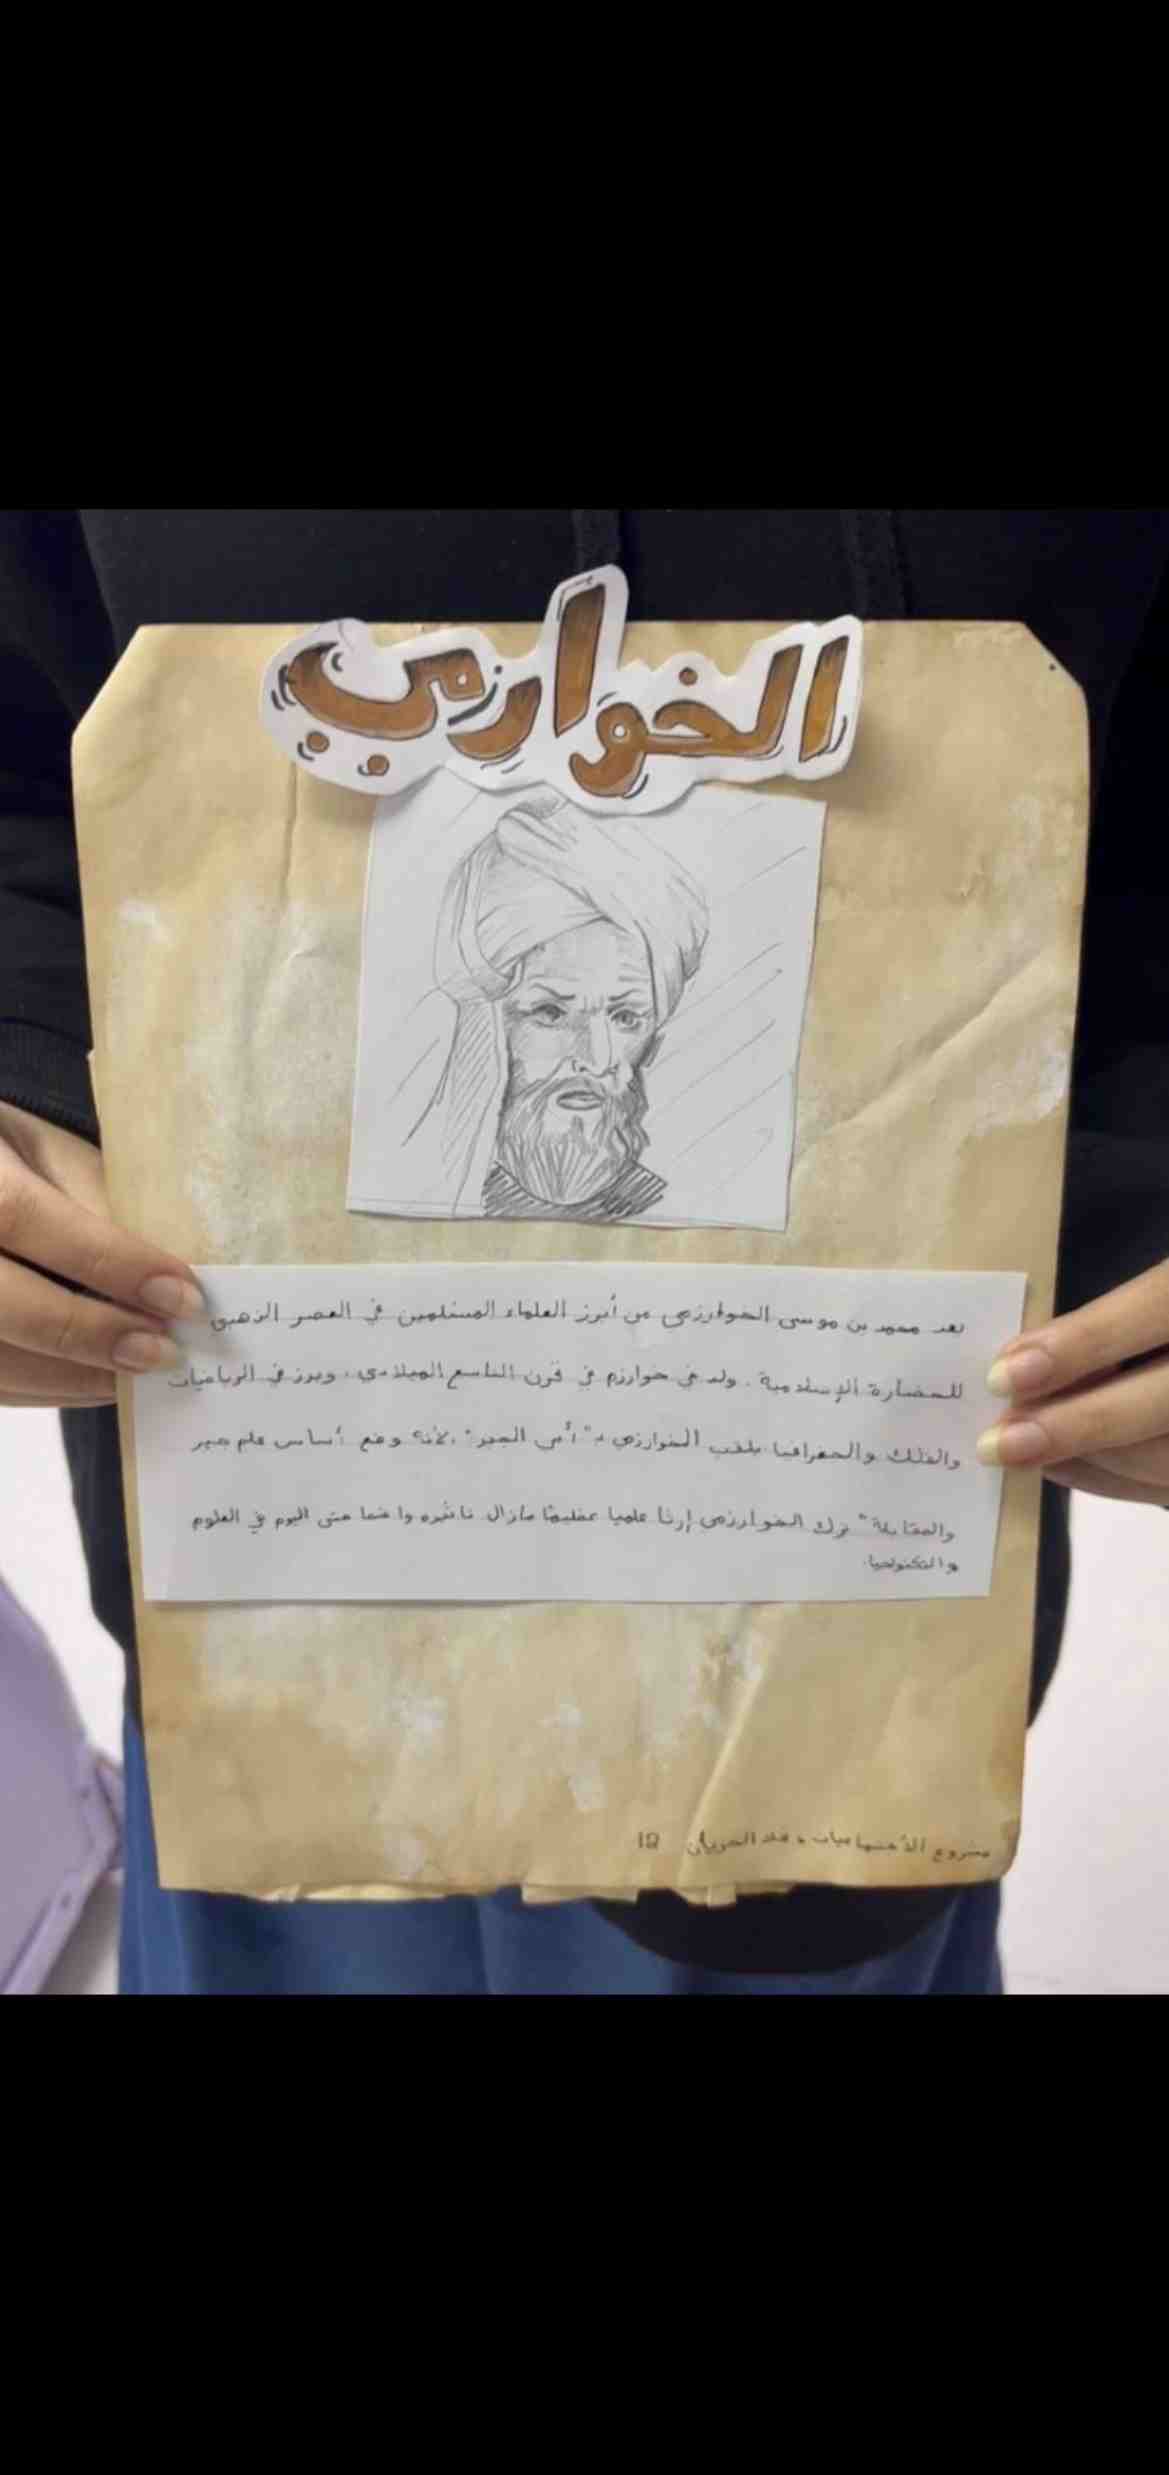 الخوارزمي
يعد محمد بن موسى الخوارزمي من أبرز العلماء المسلمين في العصر الذهبي
للحضارة الإسلامية. ولد في خوارزم في قرن التاسع الميلادي، وبرز في الرياضيات
والفلك والجغرافيا يلقب الخوارزمي بـ "أبي الجبر" لأنه وضع أساس علم جبر
والمقابلة" ترك الخوارزمي إرثا علميا عظيمًا مازال تاثيره واضحا حتى اليوم في العلوم
والتكنولوجيا.
مشروع الأجتماعيات 12